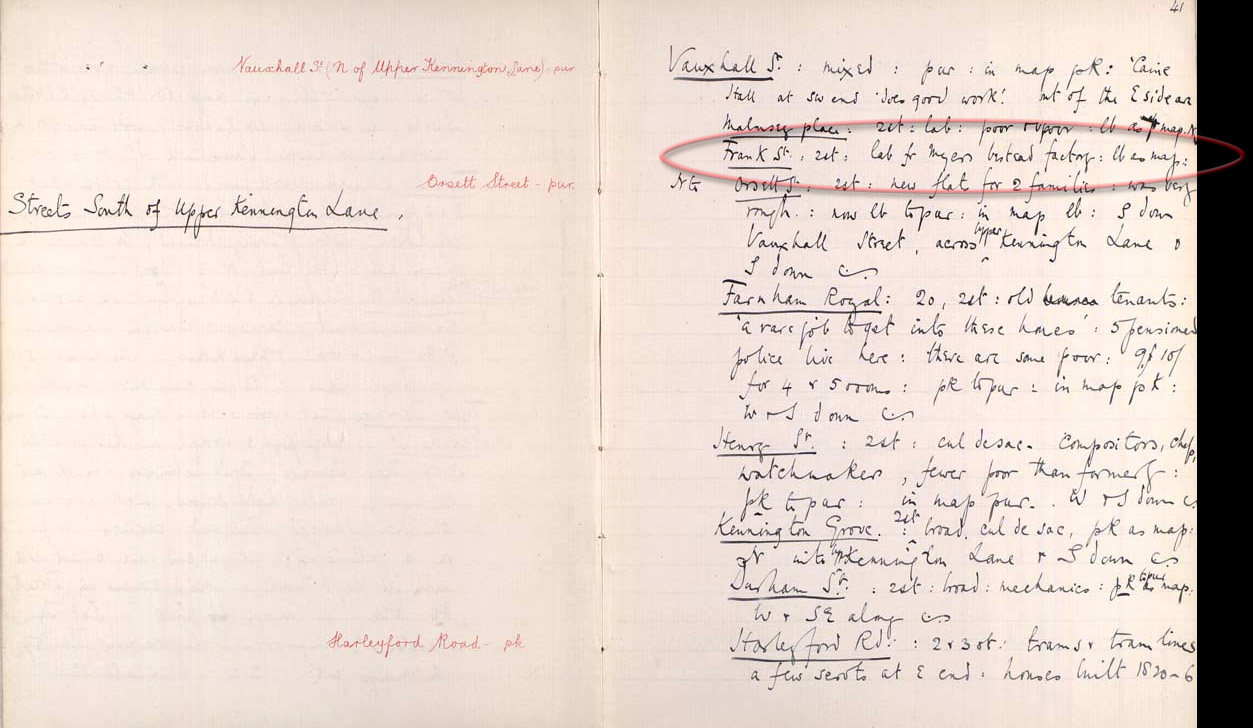 Vauxhall St (N of Upper Kennington Lane) - pur
Orsett Street - pur.
Streets South of Upper Kennington Lane.
Harleyford Road - pk
41
Vauxhall St. : mixed : pur : in map pk : 'Caine
Hall at SW end 'does good work'. out of the E side are
place : 2st : lab : poor & v poor : lb as map. N
Frank St. : 2st : lab fr Myers bedstead factory : lb as map :
Orsett St. : 2st : new flats for 2 families : was very
rough. : now lb to pur : in map lb : S down
Vauxhall Street, across Upper Kennington Lane &
S down
Farnham Royal : 20, 2st : old tenants :
'a rare job to get into these houses' : 5 pensioned
police live here : there are some poor : 9/ 10/
for 4 & 5 rooms : pk to pur : in map pk :
W & S down
Henry St. : 2st : cul de sac. Compositors,
watchmakers, fewer poor than formerly :
pk to pur : in map pur. W & S down
Kennington Grove. 2st : broad, cul de sac, pk as map :
N into Kennington Lane & S down
Durham St. : 2st : broad : mechanics : pk to pur as map :
W & SE along
Harleyford Rd. : 2 & 3 st : trams & tram lines
a few servts at E end : houses built 1820-6